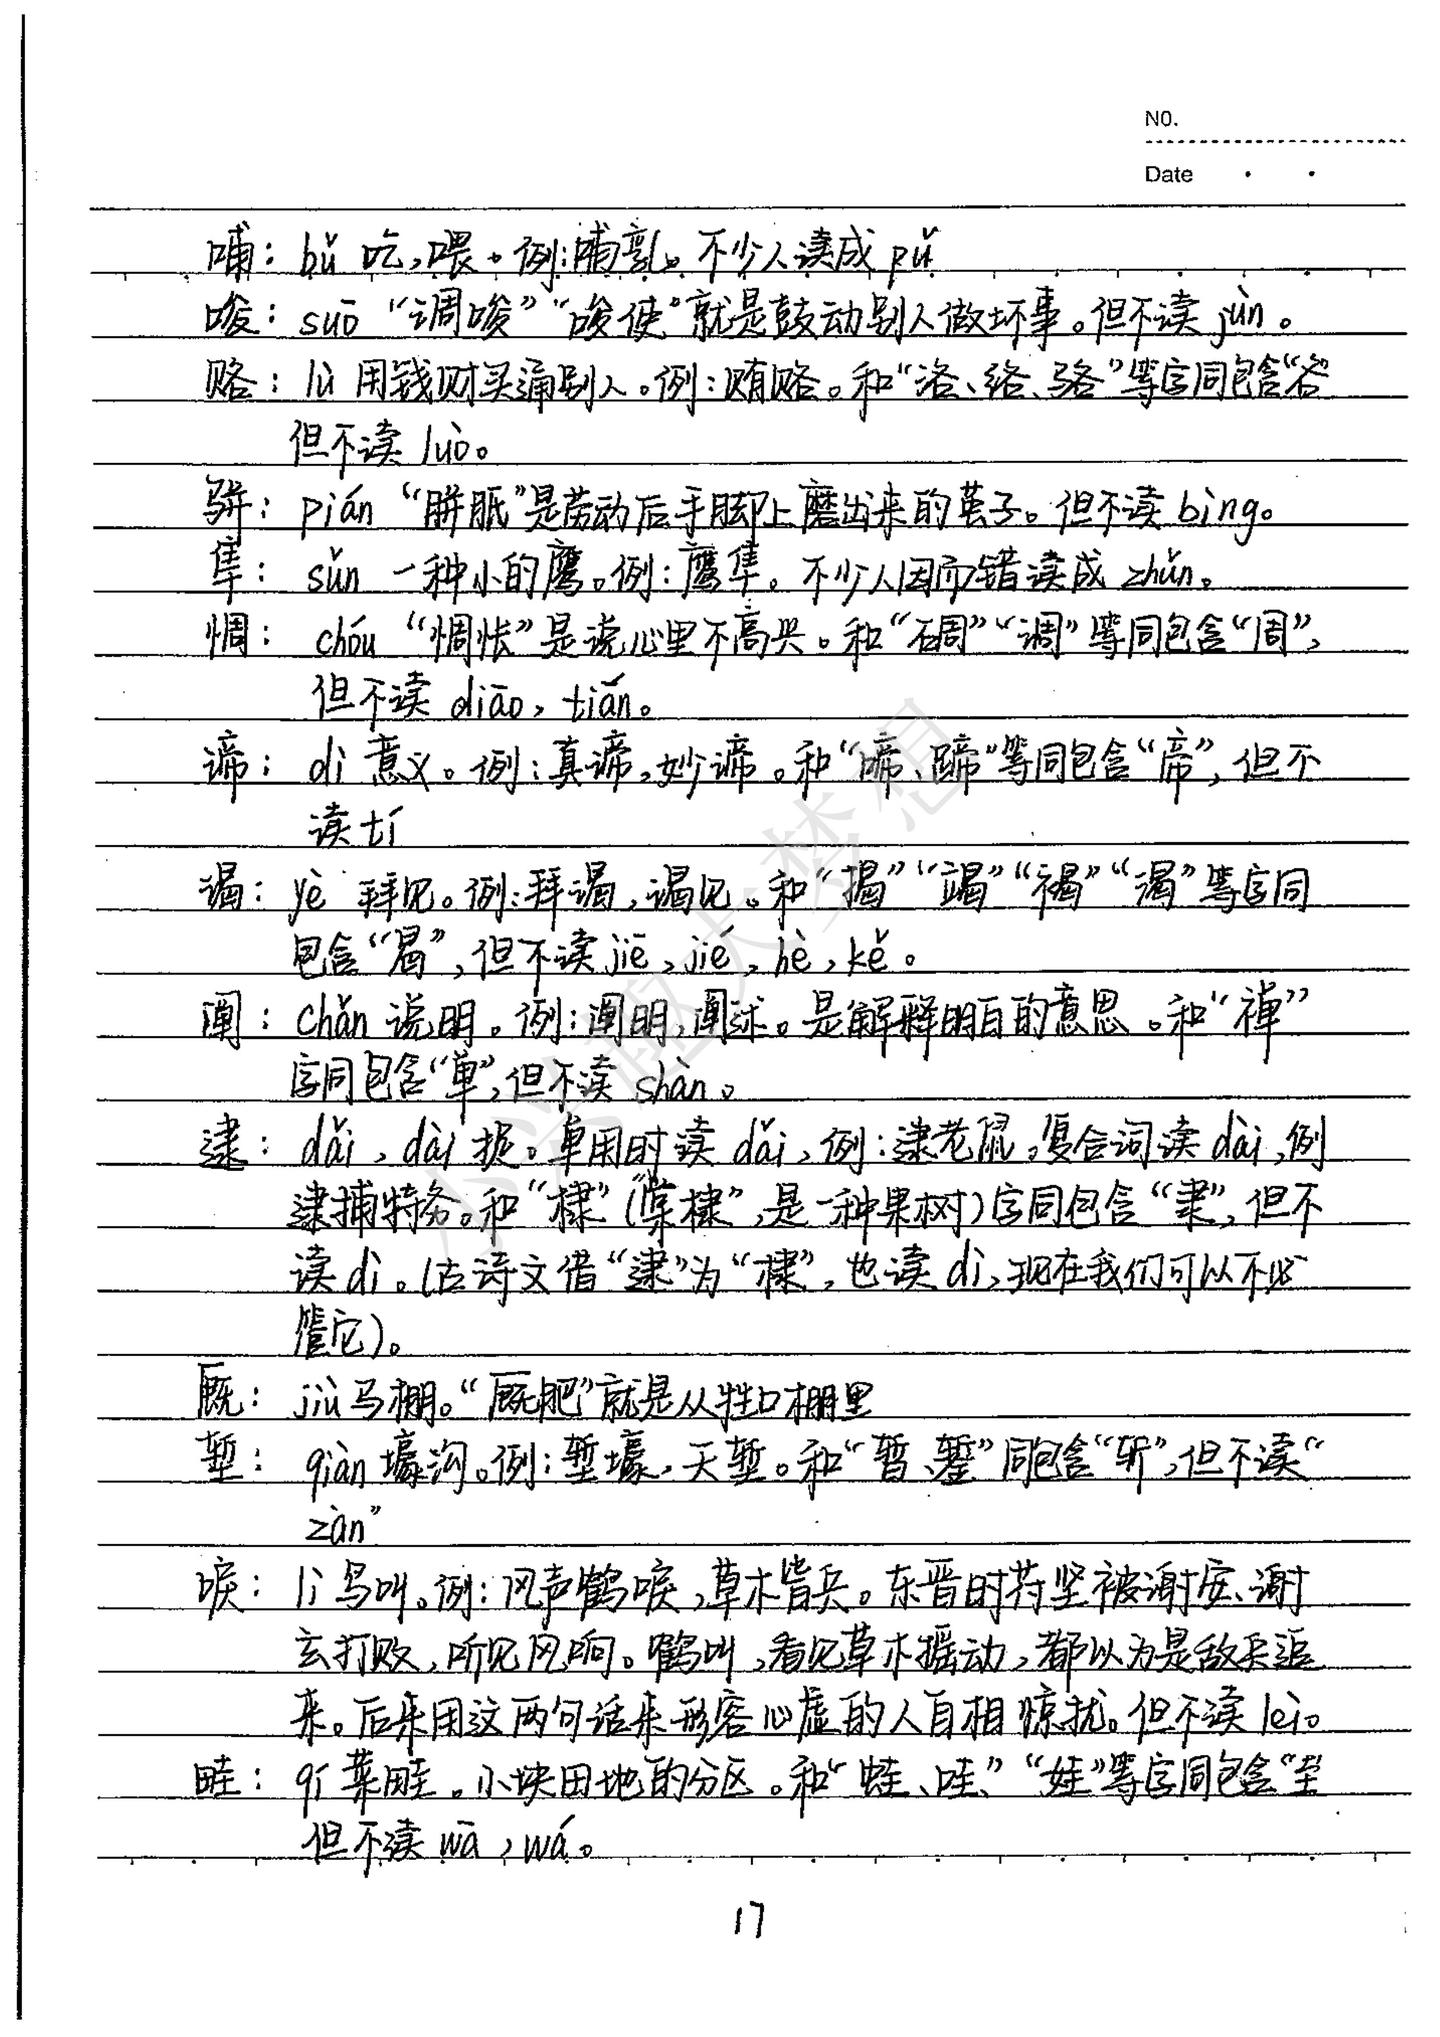 NO.
Date
哺：bǔ 吃，喂。例：哺乳。不少人读成 pǔ
唆：suō “调唆”“唆使”就是鼓动别人做坏事。但不读 jùn。
赂：lù 用钱财买通别人。例：贿赂。和“洛、络、骆”等字同包含“各
但不读 luò。
骈：pián “胼胝”是劳动后手脚上磨出来的茧子。但不读 bìng。
隼：sǔn 一种小的鹰。例：鹰隼。不少人因而错读成 zhǔn。
惆：chóu “惆怅”是说心里不高兴。和“碉”“调”等同包含“周”，
但不读 diāo，tián。
谛：dì 意义。例：真谛，妙谛。和“啼、蹄”等同包含“帝”，但不
读 tí
谒：yè 拜见。例：拜谒，谒见。和“揭”“竭”“褐”“渴”等字同
包含“曷”，但不读 jiē，jié，hè，kě。
阐：chǎn 说明。例：阐明，阐述。是解释明白的意思。和“禅”
字同包含“单”，但不读 shàn。
逮：dǎi，dài 捉。单用时读 dǎi，例：逮老鼠。复合词读 dài，例
逮捕特务。和“棣”（“棠棣”，是一种果树）字同包含“隶”，但不
读 dì。（古诗文借“逮”为“棣”，也读 dì，现在我们可以不必
管它）。
厩：jiù 马棚。“厩肥”就是从牲口棚里
堑：qiàn 壕沟。例：堑壕，天堑。和“暂、錾”同包含“斩”，但不读“
zàn”
唳：lì 鸟叫。例：风声鹤唳，草木皆兵。东晋时苻坚被谢安、谢
玄打败，听见风响。鹤叫，看见草木摇动，都以为是敌兵追
来。后来用这两句话来形容心虚的人自相惊扰。但不读 lèi。
畦：qí 菜畦。小块田地的分区。和“蛙、哇、”“娃”等字同包含“圭
但不读 wā，wá。
17
小兴趣大梦想